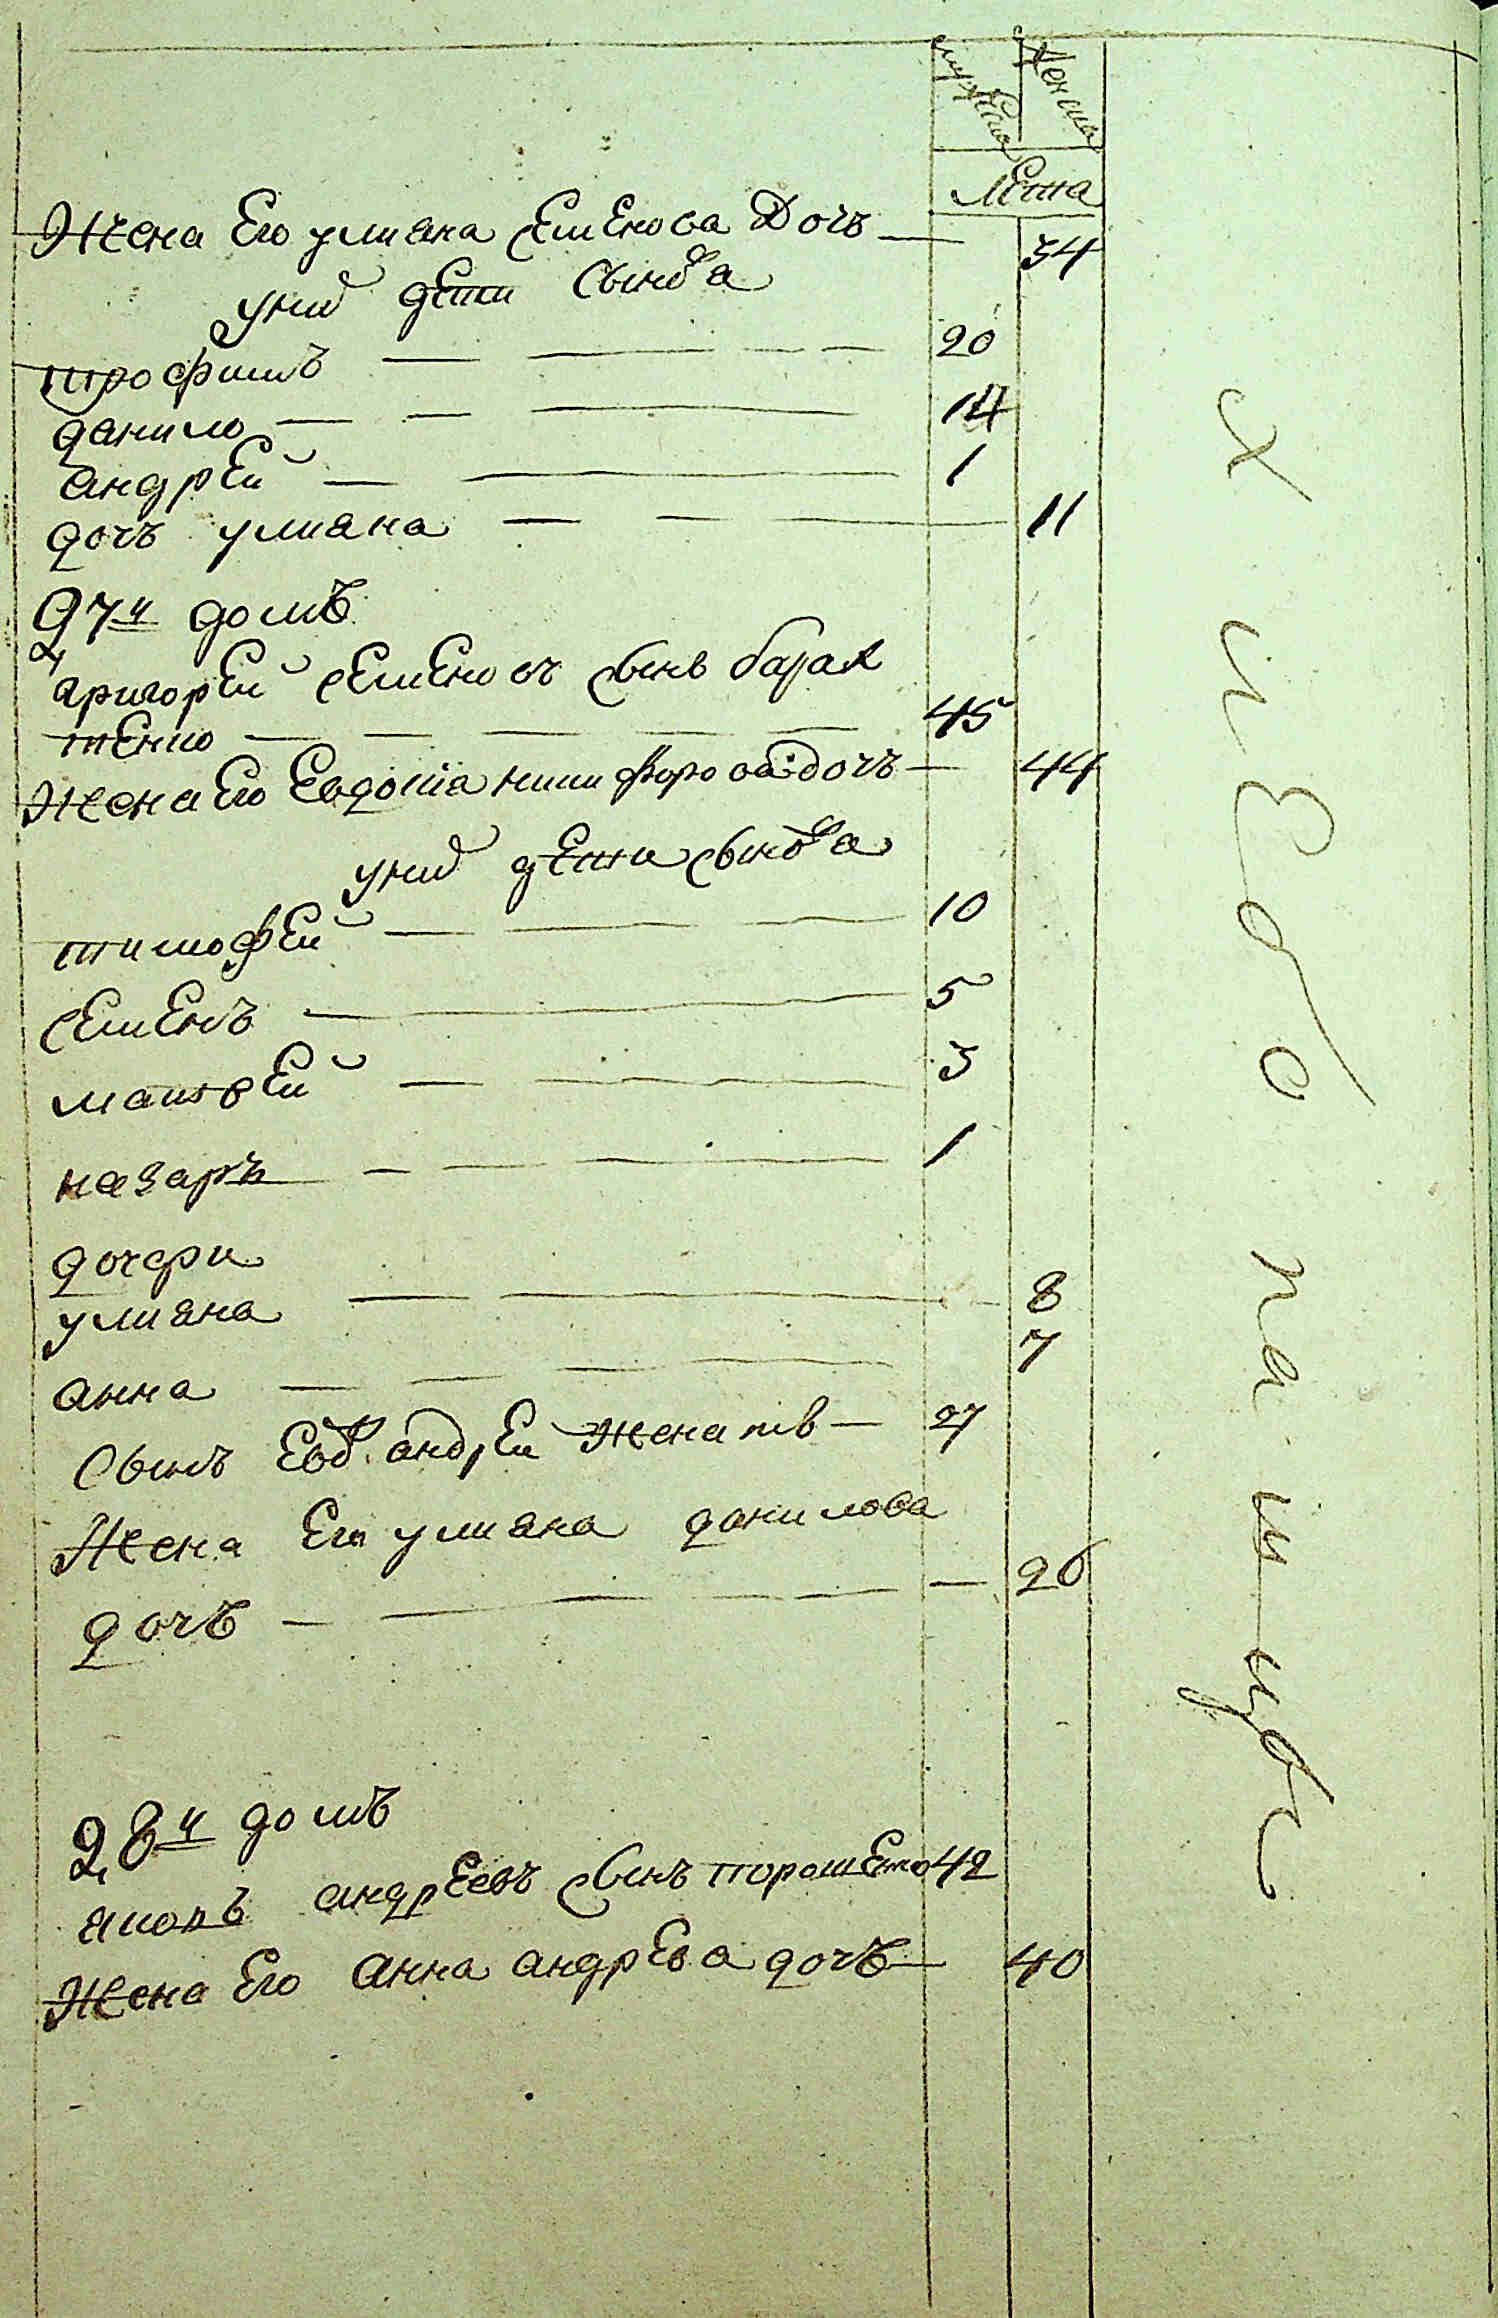 мужска женска
лета
Жена Его улияна семенова Дочь 34
унихъ дети сынова
трофимъ 20
данило 14
андрей 1
дочъ улияна 11
27й домъ
григорей семеновъ сынъ барах
тенко 45
Жена Его Евдокия никифорова дочъ 44
унихъ дети сынова
тимофей 10
семенъ 5
матвей 3
назаръ 1
дочери
улияна 8
анна 7
сынъ Ево андрей женатъ 27
Жена Его улияна данилова
дочъ 26
28й домъ
яковъ андреевъ сынъ порошенко 42
Жена Его анна андрева дочъ 40